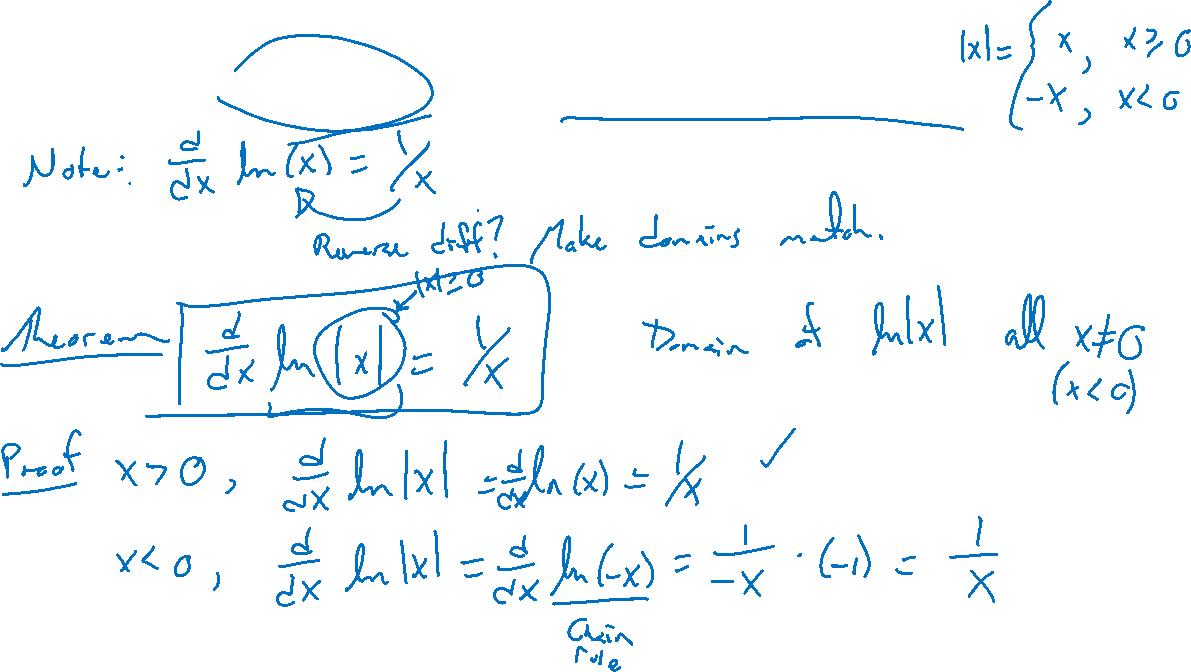 |x| = { x, x ≥ 0
-x, x < 0
Note: d/dx ln(x) = 1/x
Reverse diff? Make domains match.
|x| ≥ 0
Theorem d/dx ln|x| = 1/x Domain of ln|x| all x ≠ 0
(x < 0)
Proof x > 0, d/dx ln|x| = d/dx ln(x) = 1/x ✓
x < 0, d/dx ln|x| = d/dx ln(-x) = 1/-x · (-1) = 1/x
Chain
rule